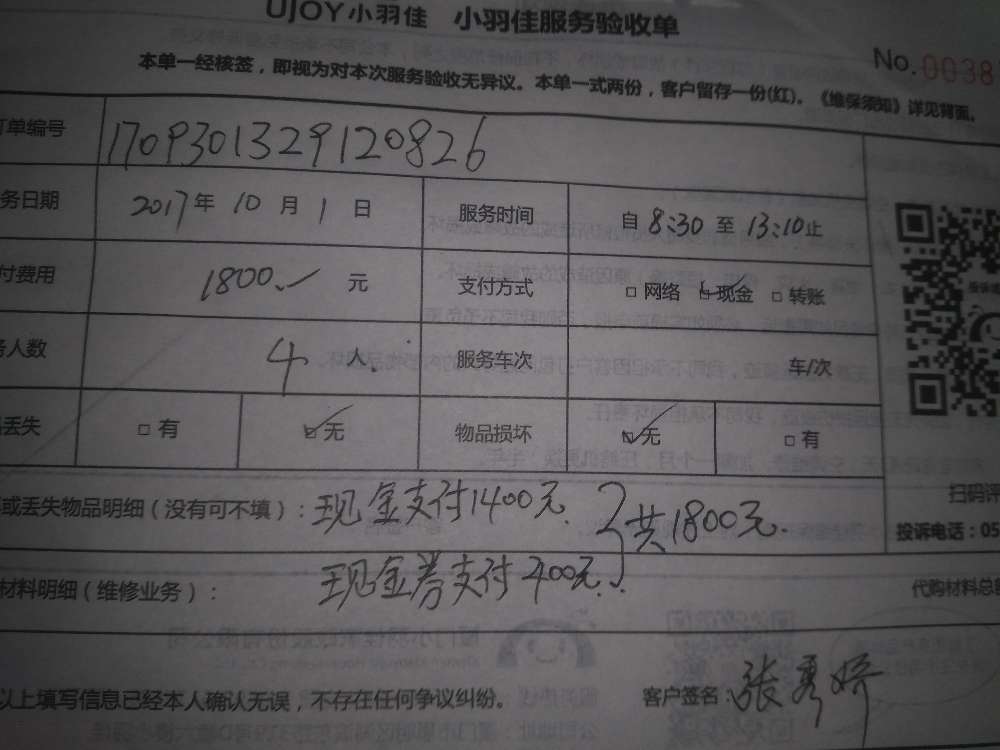 UJOY小羽佳 小羽佳服务验收单
No.0038
本单一经核签，即视为对本次服务验收无异议。本单一式两份，客户留存一份(红)。《维保须知》详见背面。
订单编号 1709301329120826
务日期 2017年10月1日 服务时间 自8:30至13:10止
付费用 1800.- 元 支付方式 □网络 ☑现金 □转账
人数 4人. 服务车次 车/次
丢失 □有 ☑无 物品损坏 ☑无 □有
或丢失物品明细（没有可不填）：现金支付1400元. 共1800元.
扫码评
投诉电话：05
材料明细（维修业务）： 现金券支付400元. 代购材料总
以上填写信息已经本人确认无误，不存在任何争议纠纷。 客户签名：张秀娇